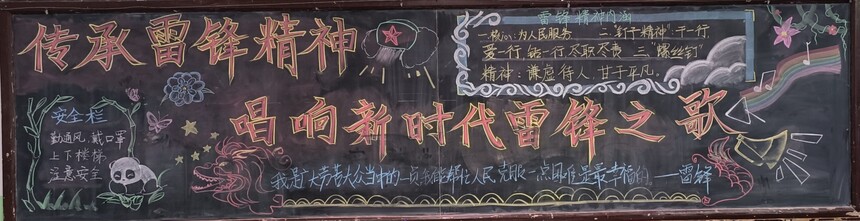 传承雷锋精神
唱响新时代雷锋之歌
雷锋精神内涵
为人民服务 二."钉子精神":干一行
爱一行 钻一行 尽职尽责 三"螺丝钉"
精神:谦虚待人 甘于平凡.
安全栏
勤通风,戴口罩
上下楼梯
注意安全
我是大劳苦大众当中的一员我能帮忙人民克服一点困难是最幸福的.——雷锋